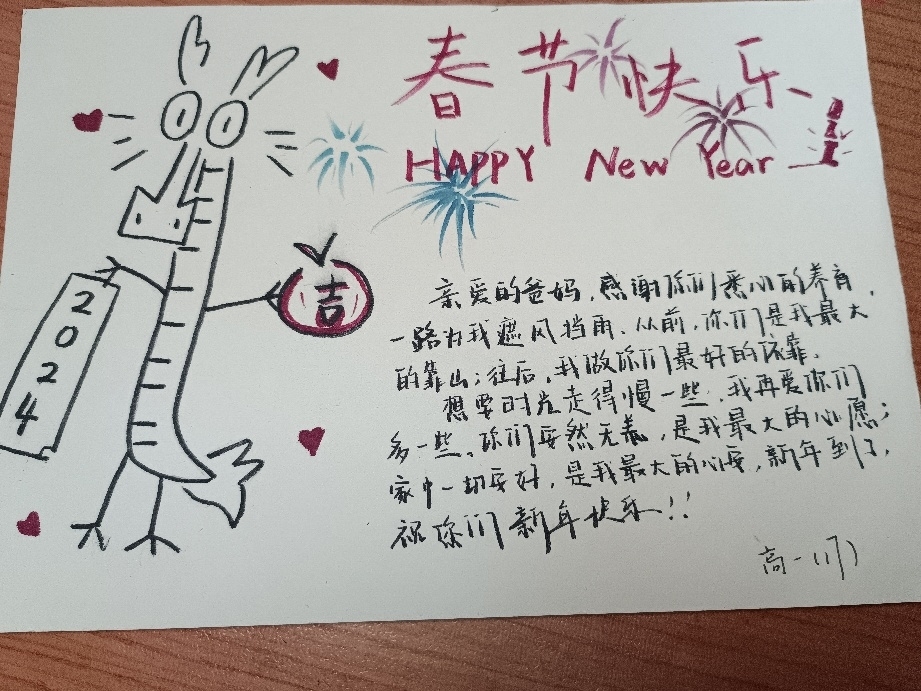 春节快乐
HAPPY New Year
2024
吉
亲爱的爸妈,感谢你们悉心的养育,
一路为我遮风挡雨.从前,你们是我最大
的靠山;往后,我做你们最好的依靠.
想要时光走得慢一些,我再爱你们
多一些.你们安然无恙,是我最大的心愿;
家中一切安好,是我最大的心安,新年到了,
祝你们新年快乐!!
高一(17)